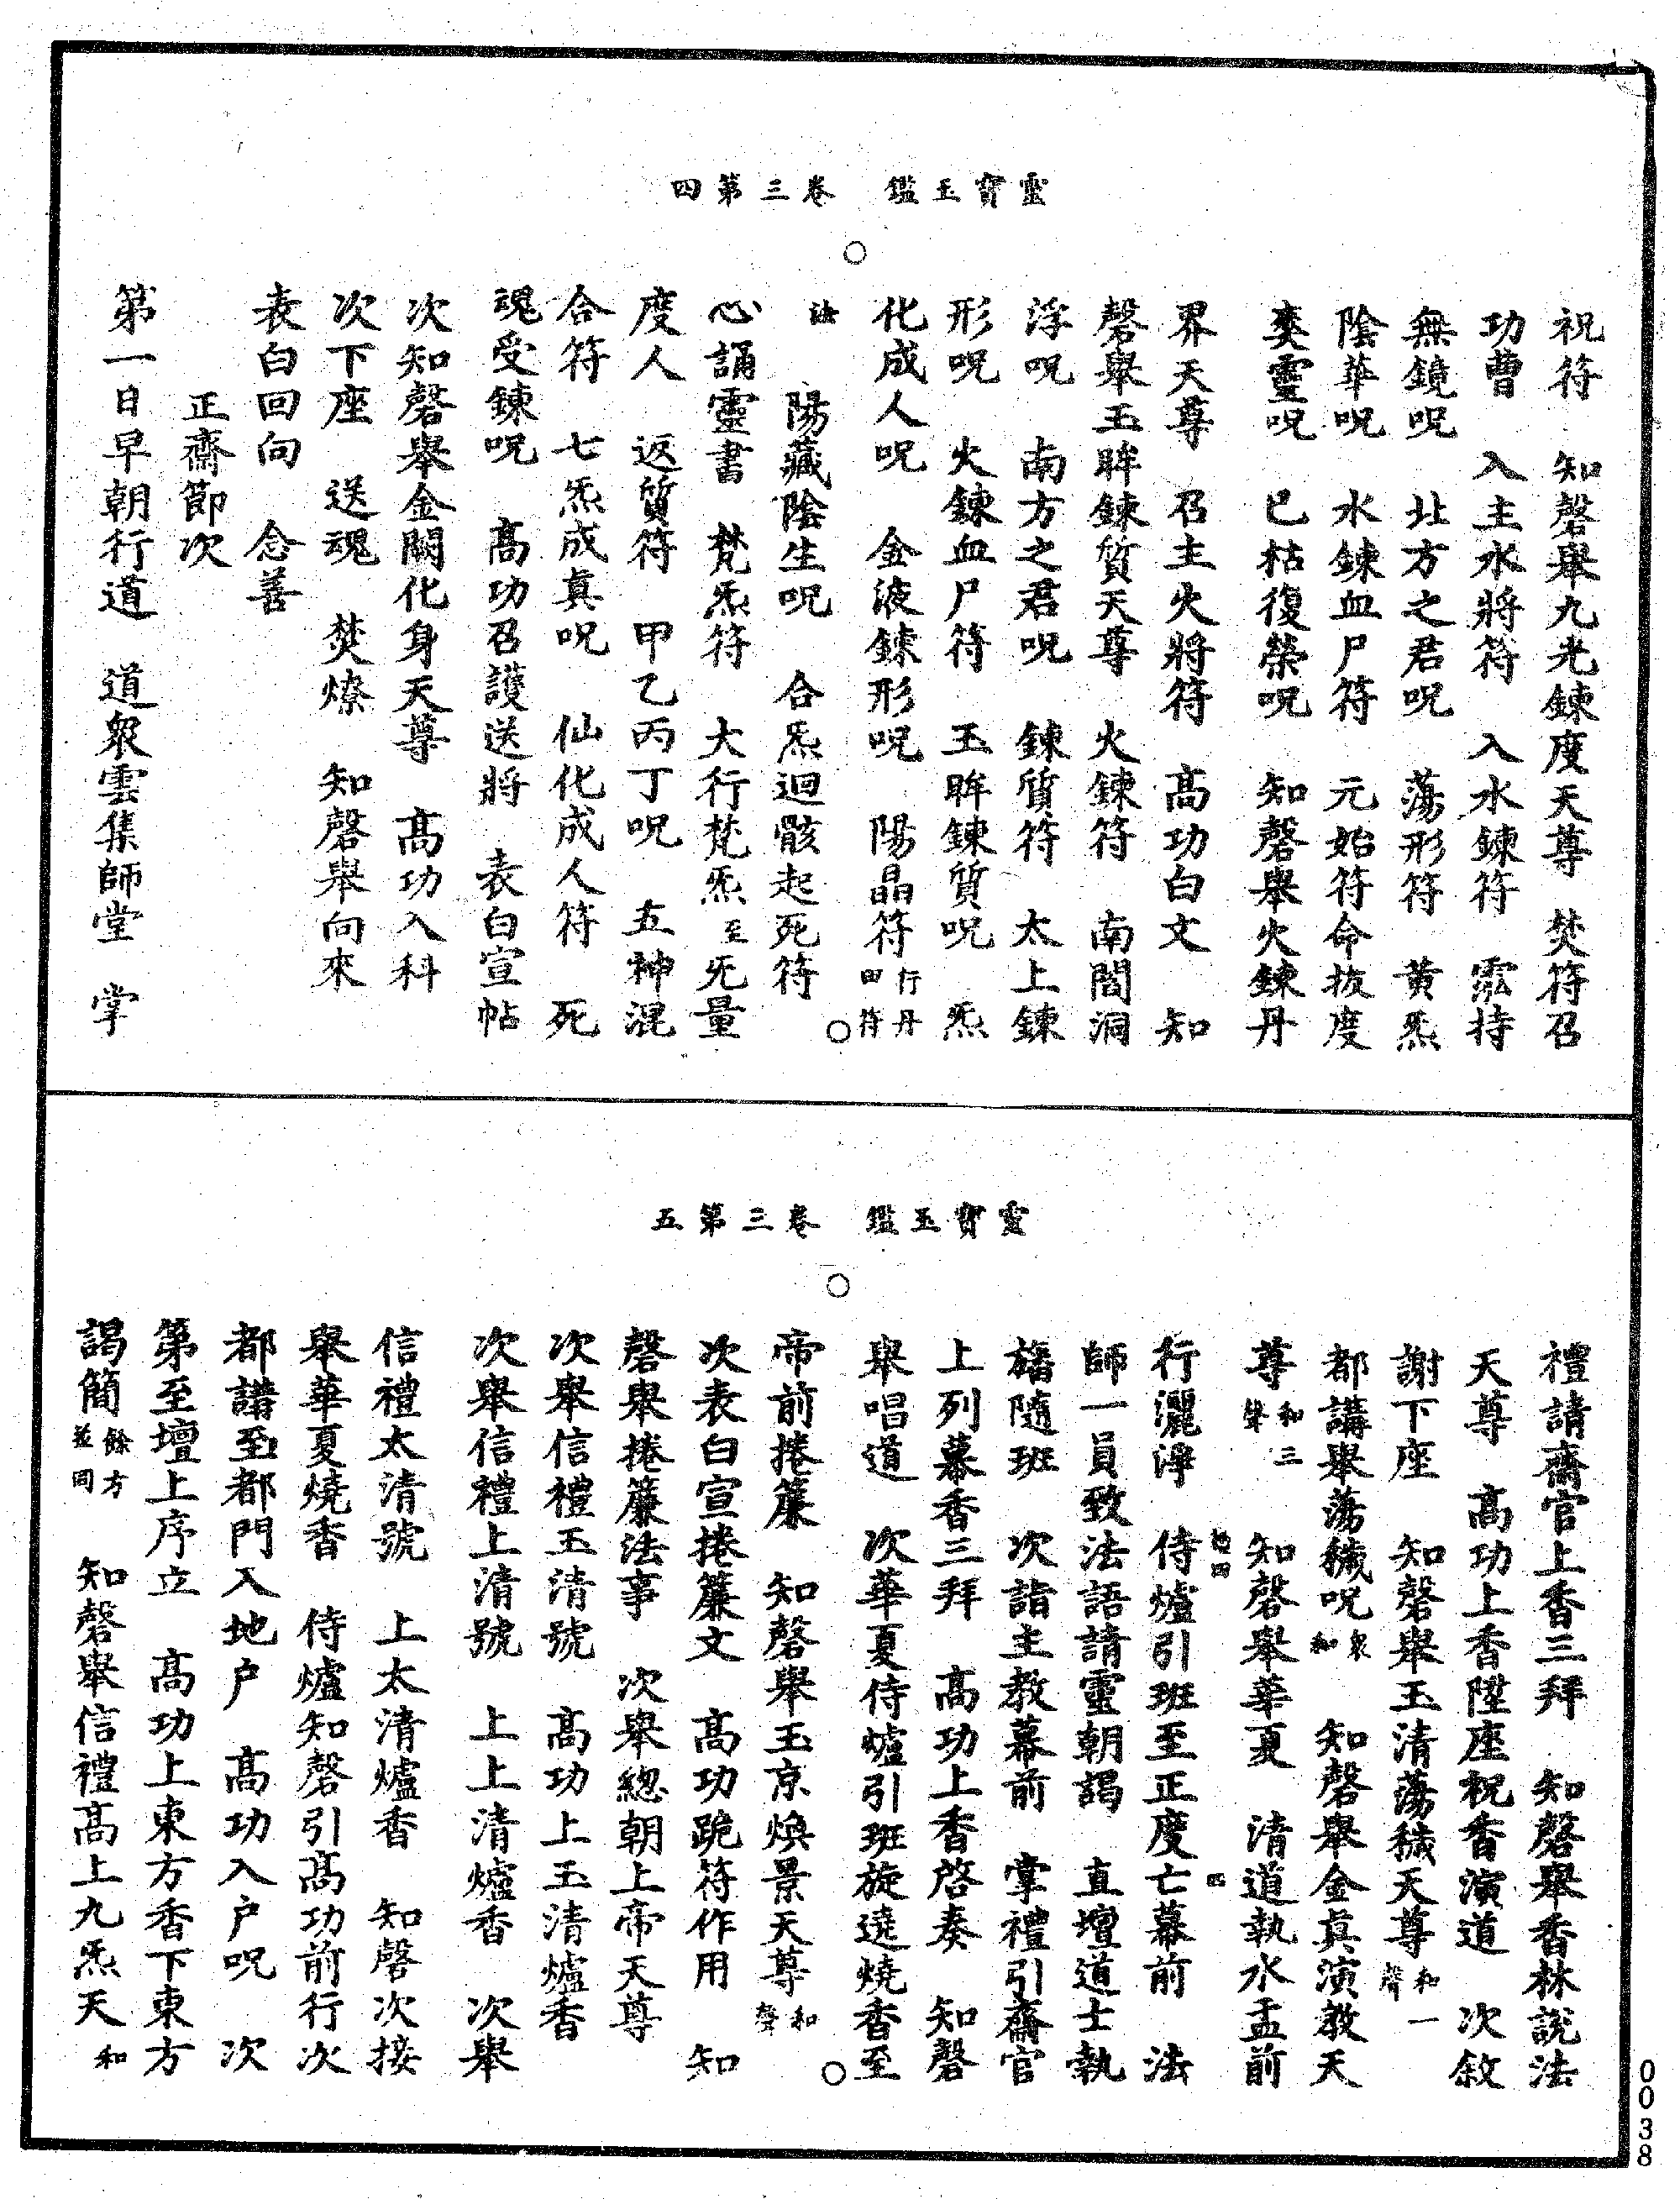 靈寶玉鑑　卷三第四
祝符　知磬舉九光鍊度天尊　焚符召
功曹　入主水將符　入水鍊符　霐持
無鏡呪　北方之君呪　蕩形符　黃炁
陰華呪　水鍊血尸符　元始符命拔度
爽靈呪　已枯復榮呪　知磬舉火鍊丹
界天尊　召主火將符　高功白文　知
磬舉玉眸鍊質天尊　火鍊符　南閻洞
浮呪　南方之君呪　鍊質符　太上鍊
形呪　火鍊血尸符　玉眸鍊質呪　炁
化成人呪　金液鍊形呪　陽晶符行丹田符
法　陽藏陰生呪　合炁迴骸起死符
心誦靈書　梵炁符　大行梵炁至旡量
度人　返質符　甲乙丙丁呪　五神混
合符　七炁成真呪　仙化成人符　死
魂受鍊呪　高功召護送將　表白宣帖
次知磬舉金闕化身天尊　高功入科
次下座　送魂　焚燎　知磬舉向來
表白回向　念善
正齋節次
第一日早朝行道　道衆雲集師堂　掌
靈寶玉鑑　卷三第五
禮請齋官上香三拜　知磬舉香林說法
天尊　高功上香陞座祝香演道　次敘
謝下座　知磬舉玉清蕩穢天尊和一聲
都講舉蕩穢呪衆和　知磬舉金真演教天
尊和三聲　知磬舉華夏　清道執水盂前
行灑淨　侍爐引班至正度亡幕前　法
師一員致法語請靈朝謁　直壇道士執
旛隨班　次詣主教幕前　掌禮引齋官
上列幕香三拜　高功上香啓奏　知磬
舉唱道　次華夏侍爐引班旋遶燒香至
帝前捲簾　知磬舉玉京煥景天尊和聲
次表白宣捲簾文　高功跪符作用　知
磬舉捲簾法事　次舉總朝上帝天尊
次舉信禮玉清號　高功上玉清爐香
次舉信禮上清號　上上清爐香　次舉
信禮太清號　上太清爐香　知磬次接
舉華夏燒香　侍爐知磬引高功前行次
都講至都門入地户　高功入户呪　次
第至壇上序立　高功上東方香下東方
謁簡餘方並同　知磬舉信禮高上九炁天和
0038